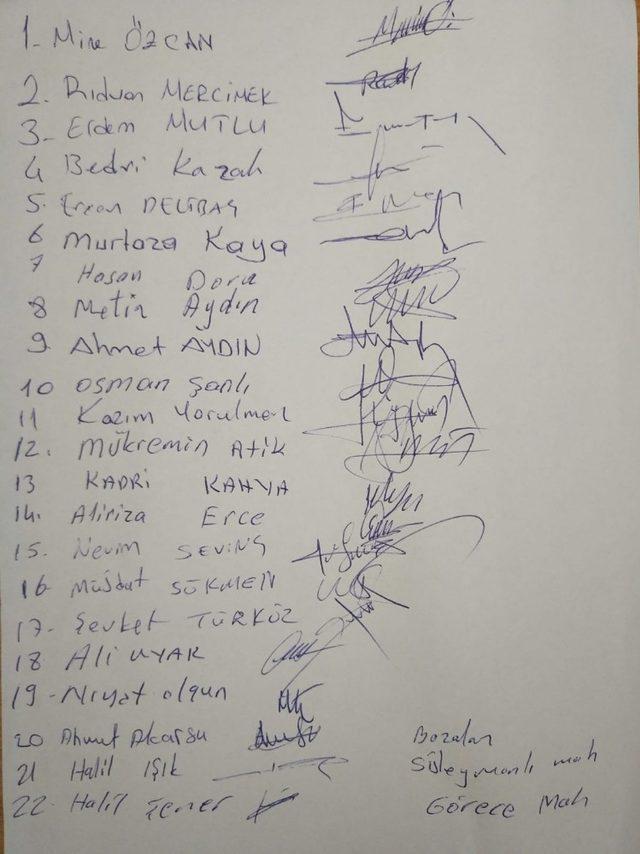 1- Mine ÖZCAN
2. Rıdvan MERCİMEK
3- Erdem MUTLU
4 Bedri Kazak
5. Ercan DELİBAŞ
6 Murtaza Kaya
7 Hasan Doru
8 Metin Aydın
9. Ahmet AYDIN
10 osman şanlı
11 Kazım Yorulmaz
12. Mükremin Atik
13 KADRİ KAHYA
14. Aliriza Erce
15. Nevim SEVİNÇ
16 Müjdat SÖKMEN
17- Şevket TÜRKÖZ
18 Ali UYAR
19 - Niyat olgun
20 Ahmut Akarsu Bozalan
21 Halil IŞIK Süleymanlı mah
22. Halil Şener Görece Mah